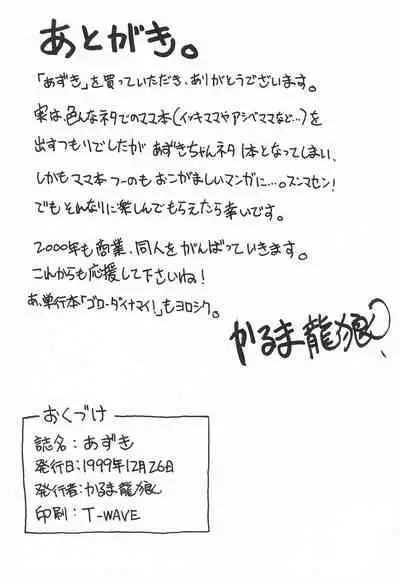 あとがき。
「あずき」を買っていただき、ありがとうございます。
実は、色んなネタでのママ本(イッキママやアシベママなど…)を
出すつもりでしたが あずきちゃんネタ1本となってしまい、
しかもママ本つーのもおこがましいマンガに…。スンマセン!
でもそれなりに楽しんでもらえたら幸いです。
2000年も商業、同人をがんばっていきます。
これからも応援して下さいね!
あ、単行本「ゴロ・ダイナマイ!」もヨロシク。
かるま龍狼
おくづけ
誌名:あずき
発行日:1999年12月26日
発行者:かるま龍狼
印刷:T-WAVE